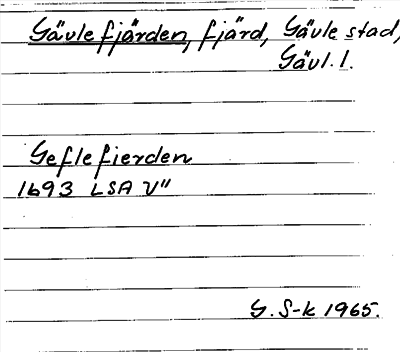 Gävlefjärden, fjärd, Gävle stad,
Gävl. l.
Geflefierden
1693 LSA V"
G. S-k 1965.